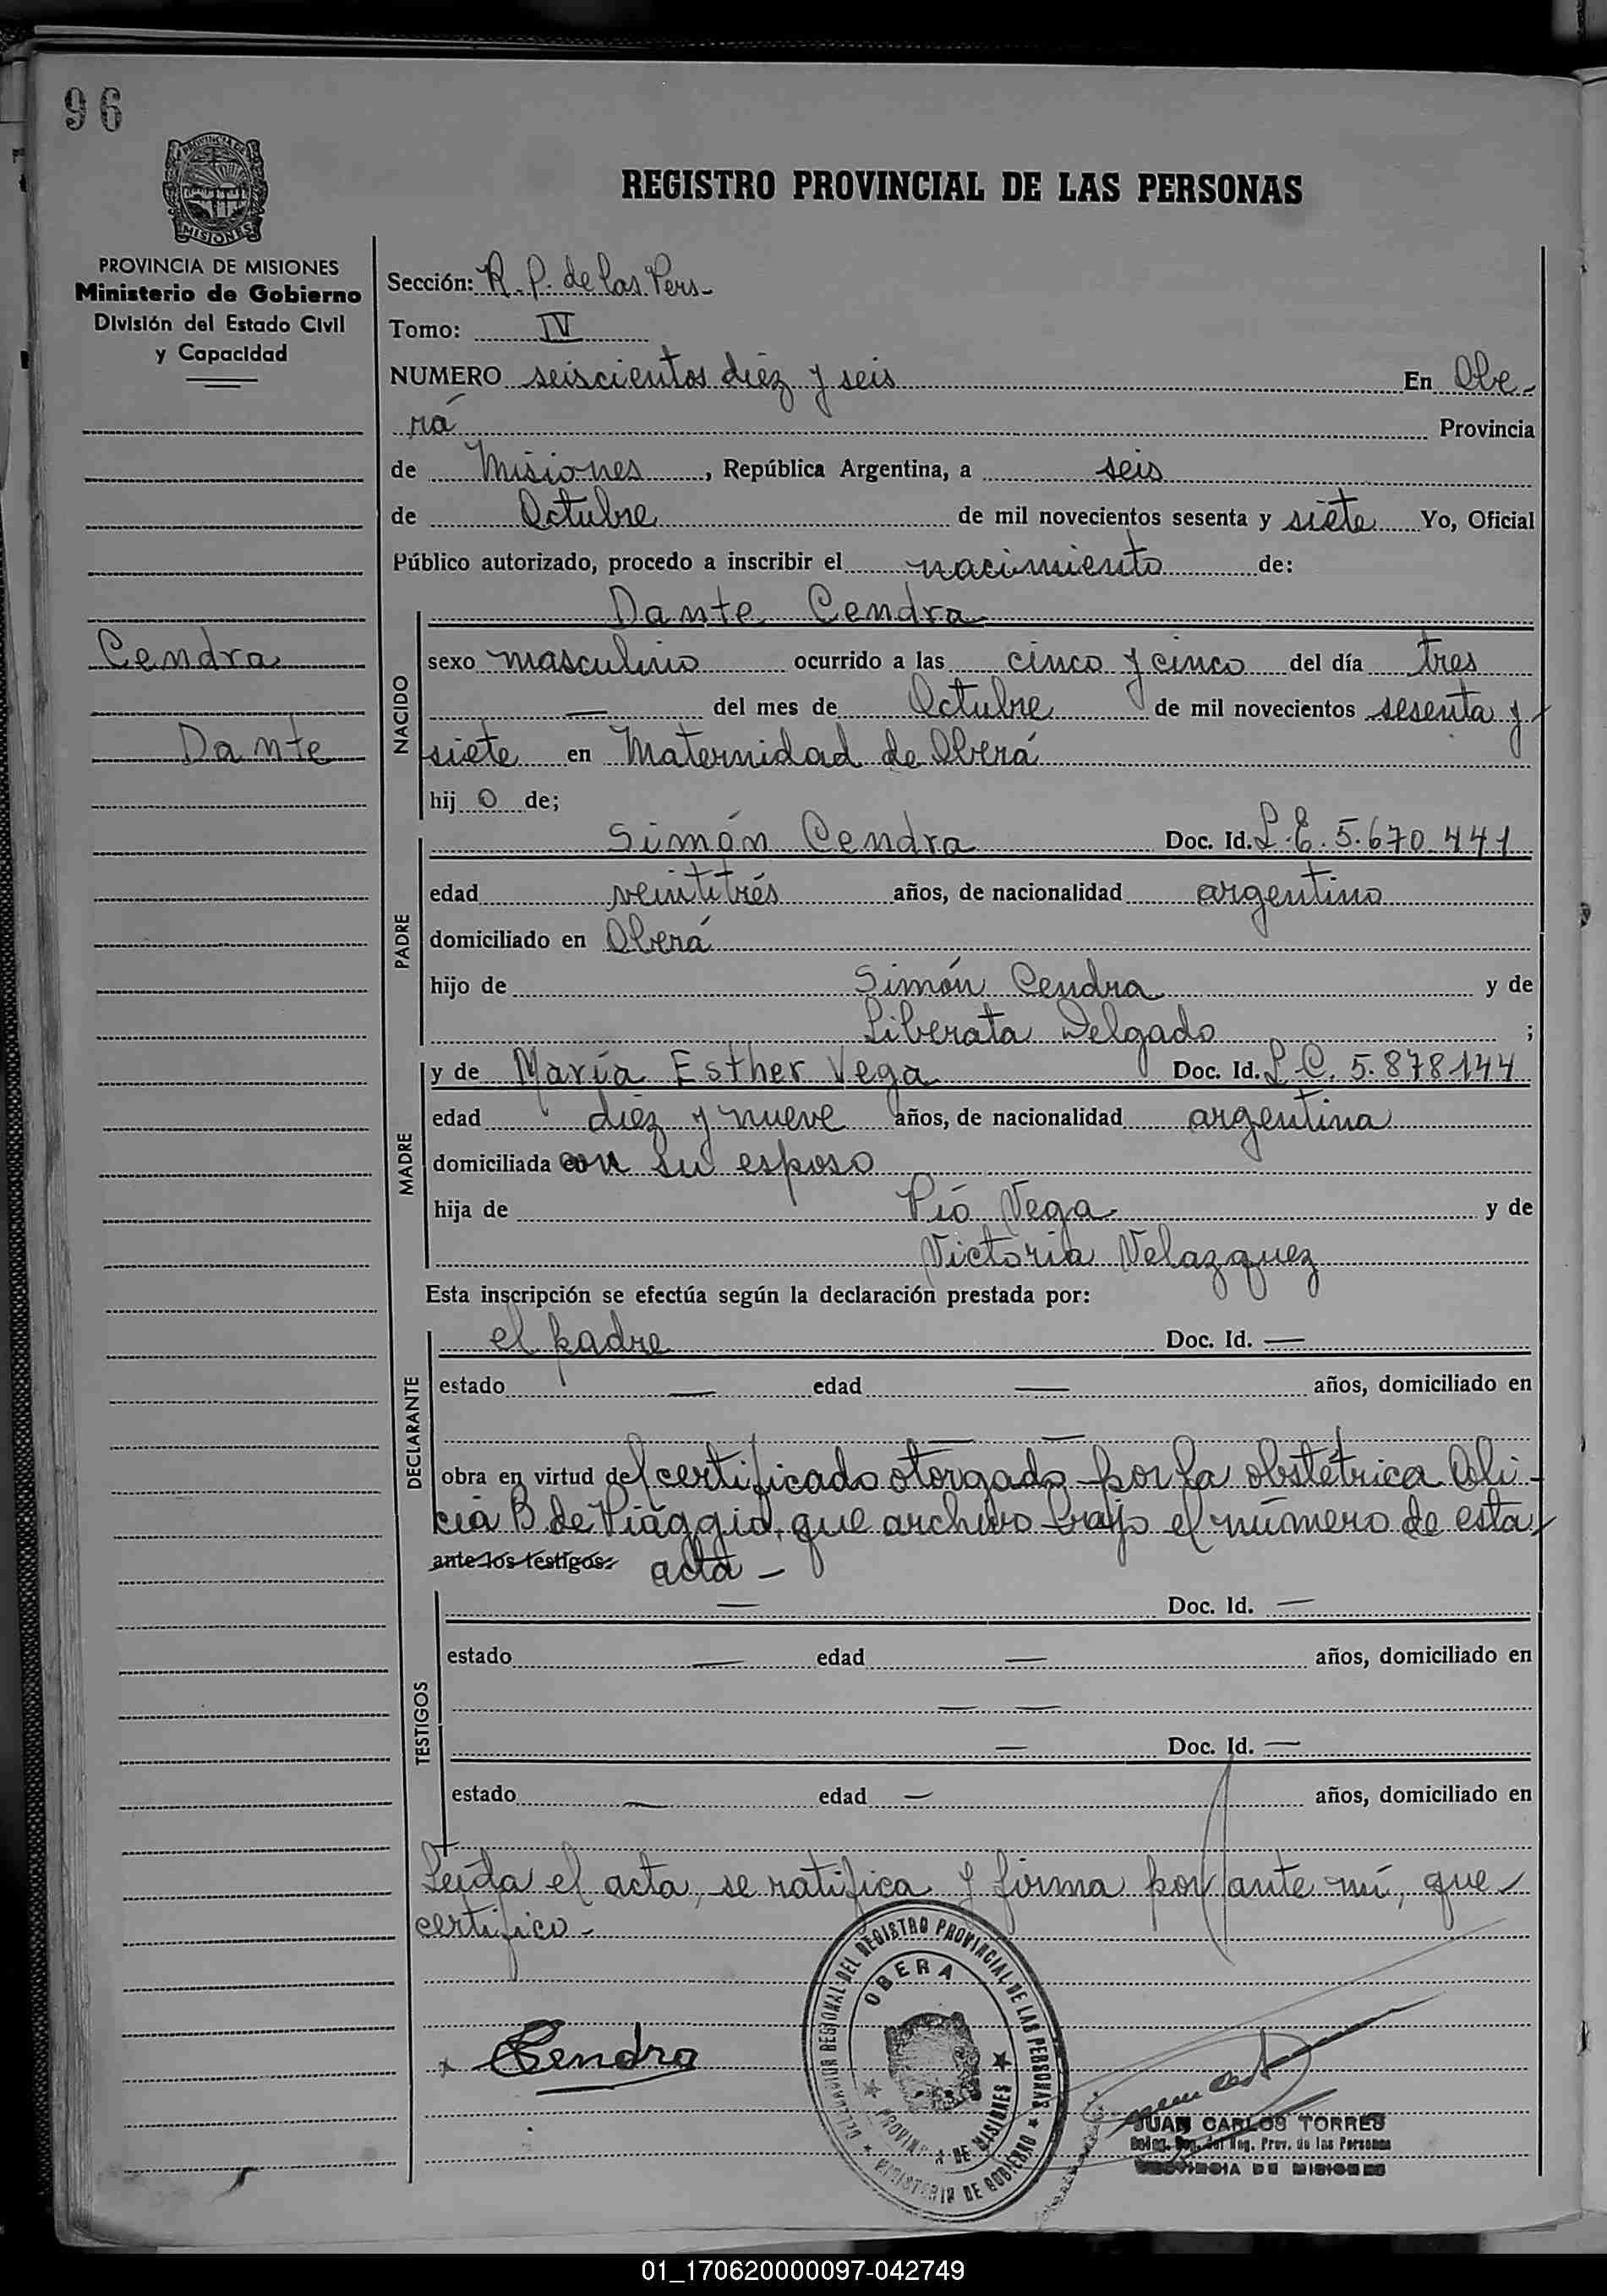 96
PROVINCIA DE
MISIONES
REGISTRO PROVINCIAL DE LAS PERSONAS
PROVINCIA DE MISIONES
Ministerio de Gobierno
División del Estado Civil
y Capacidad
Sección: R. P. de las Pers-
Tomo: IV
NUMERO seiscientos diez y seis En Obe-
rá Provincia
de Misiones, República Argentina, a seis
de Octubre de mil novecientos sesenta y siete Yo, Oficial
Público autorizado, procedo a inscribir el nacimiento de:
Cendra
Dante
NACIDO
Dante Cendra
sexo masculino ocurrido a las cinco y cinco del día tres
— del mes de Octubre de mil novecientos sesenta y
siete en Maternidad de Oberá
hij o de;
PADRE
Simón Cendra Doc. Id. L.E. 5.670.441
edad veintitrés años, de nacionalidad argentino
domiciliado en Oberá
hijo de Simón Cendra y de
Liberata Delgado ;
MADRE
y de María Esther Vega Doc. Id. L.C. 5.878.144
edad diez y nueve años, de nacionalidad argentina
domiciliada con su esposo
hija de Pió Vega y de
Victoria Velazquez
Esta inscripción se efectúa según la declaración prestada por:
DECLARANTE
el padre Doc. Id. —
estado — edad — años, domiciliado en
— —
obra en virtud del certificado otorgado por la obstétrica Ali-
cia B. de Piaggio, que archivo bajo el número de esta
ante los testigos: acta -
TESTIGOS
— Doc. Id. —
estado — edad — años, domiciliado en
— —
— Doc. Id. —
estado — edad — años, domiciliado en
Leída el acta, se ratifica y firma por ante mí, que
certifico -
x Cendra
DELEGACION REGIONAL DEL REGISTRO PROVINCIAL DE LAS PERSONAS
MINISTERIO DE GOBIERNO
OBERA
PROVINCIA DE MISIONES
JUAN CARLOS TORRES
Deleg. Reg. del Reg. Prov. de las Personas
PROVINCIA DE MISIONES
01_170620000097-042749